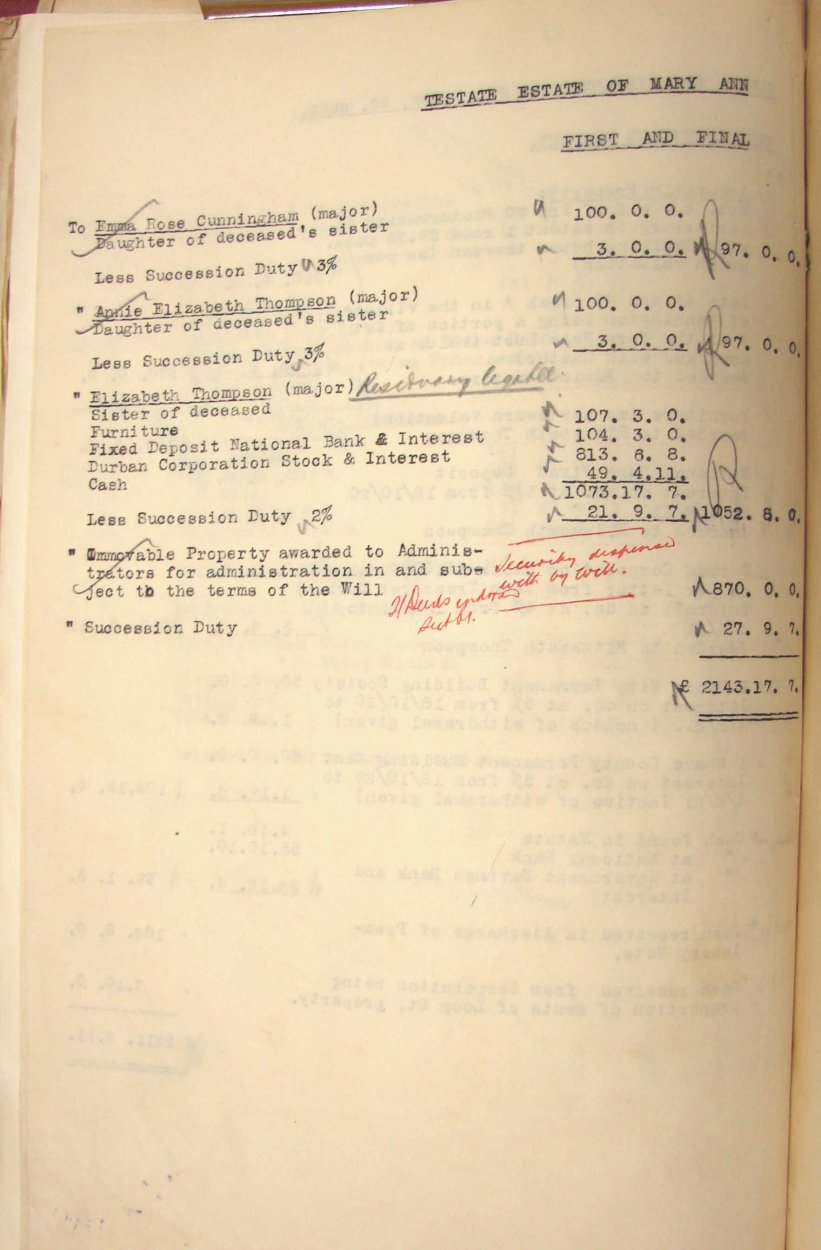 TESTATE ESTATE OF MARY ANN
FIRST AND FINAL
To Emma Rose Cunningham (major) 100. 0. 0.
Daughter of deceased's sister
Less Succession Duty 3% 3. 0. 0. 97. 0. 0.
" Annie Elizabeth Thompson (major) 100. 0. 0.
Daughter of deceased's sister
Less Succession Duty 3% 3. 0. 0. 97. 0. 0.
" Elizabeth Thompson (major) Residuary legatee.
Sister of deceased
Furniture 107. 3. 0.
Fixed Deposit National Bank & Interest 104. 3. 0.
Durban Corporation Stock & Interest 813. 6. 8.
Cash 49. 4.11.
1073.17. 7.
Less Succession Duty 2% 21. 9. 7. 1052. 8. 0.
" Immovable Property awarded to Adminis-
trators for administration in and sub-
ject to the terms of the Will 870. 0. 0.
Security dispensed
with by Will.
Deeds
" Succession Duty 27. 9. 7.
£ 2143.17. 7.